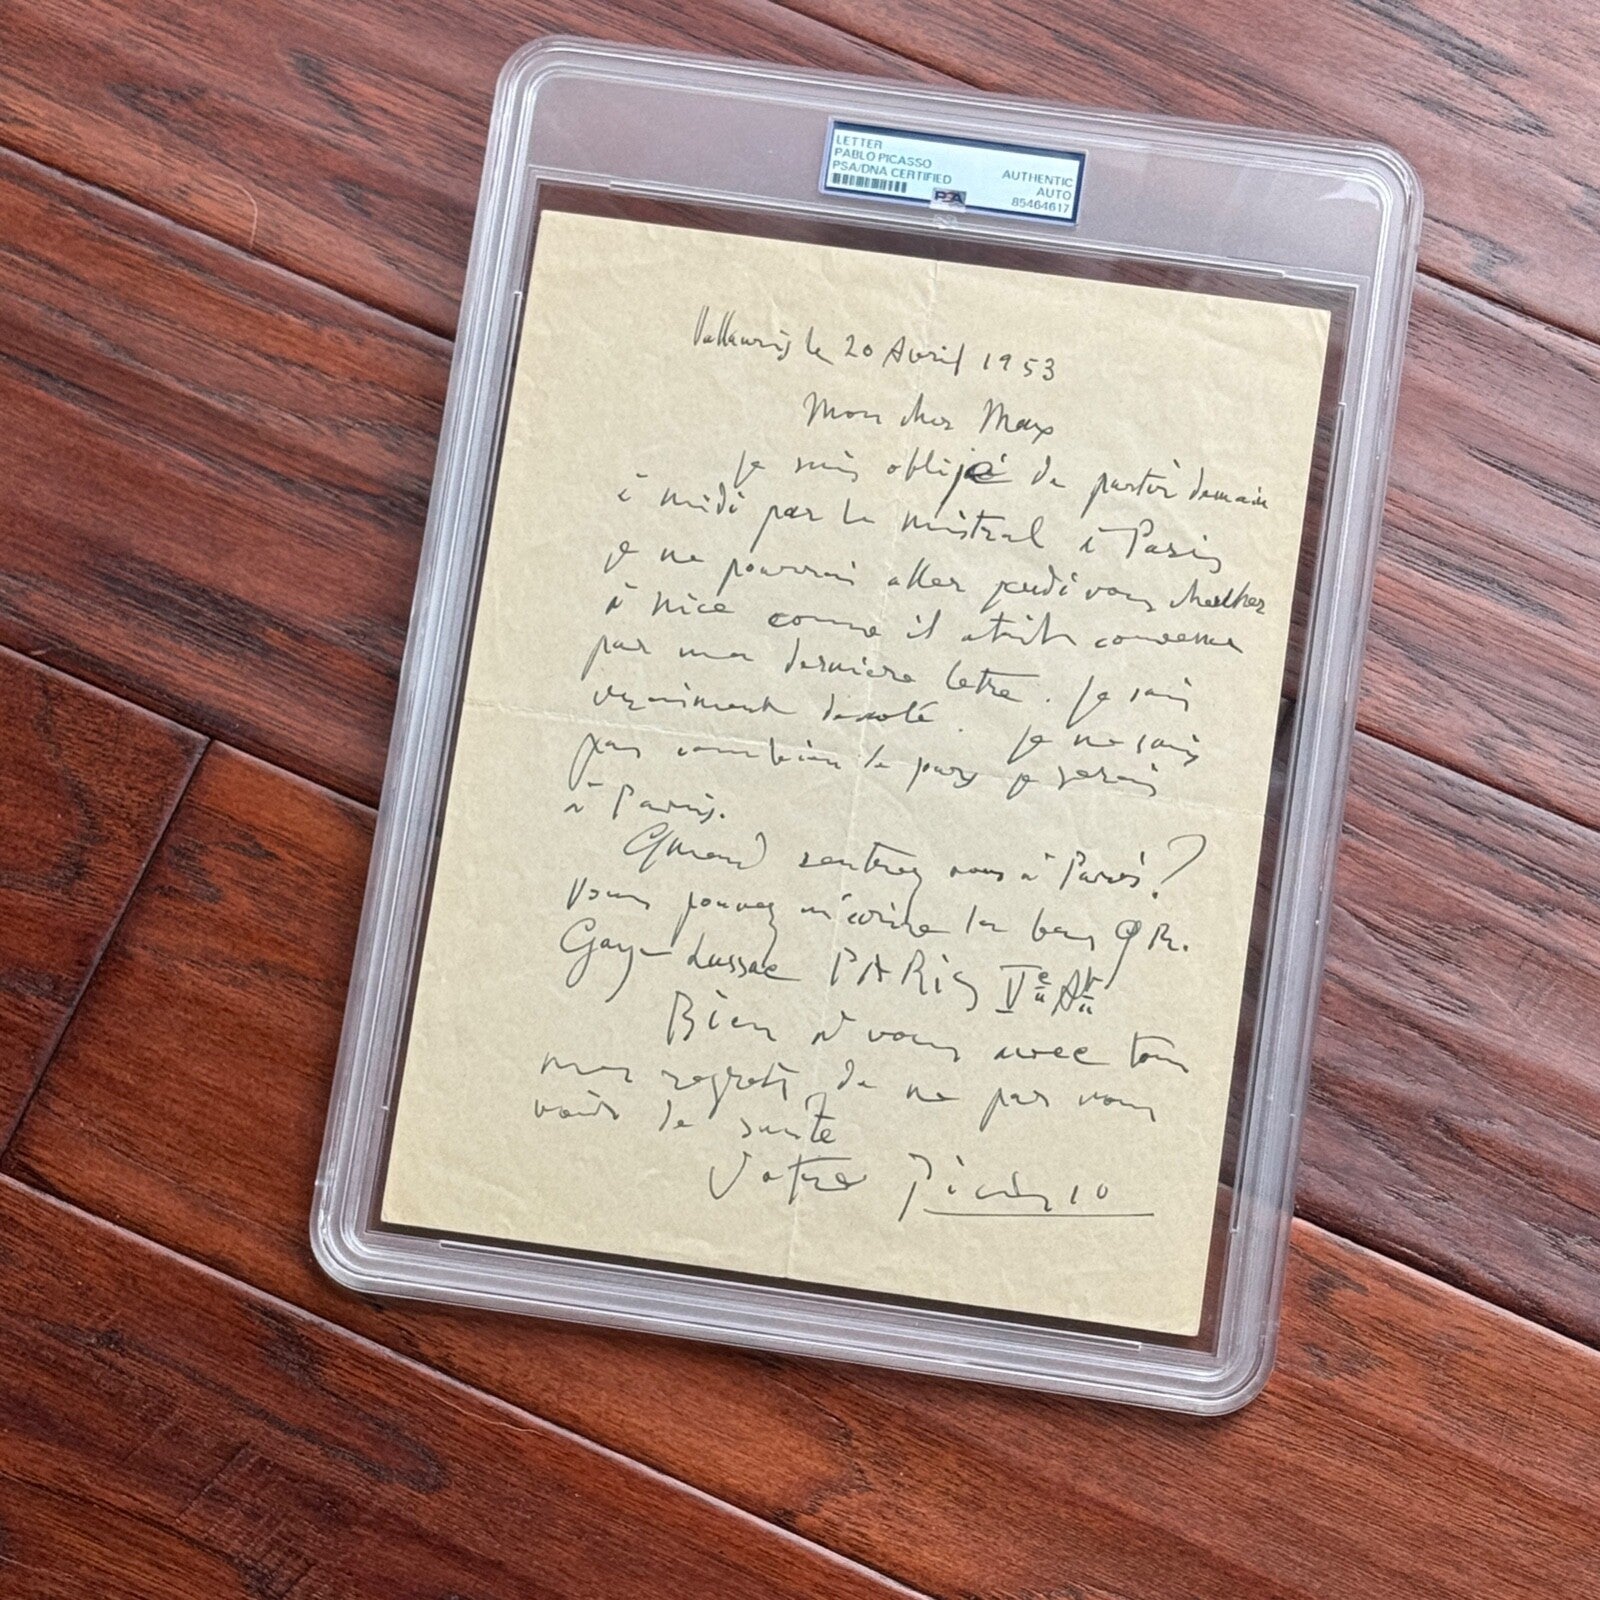 LETTER
PABLO PICASSO
PSA/DNA CERTIFIED
AUTHENTIC
AUTO
85464617
PSA
Vallauris le 20 Avril 1953
Mon cher Max
je suis oblijé de partir demain
à midi par le mistral à Paris
je ne pourrai aller jeudi vous cherher
à Nice comme il était convenu
par ma dernière letre. Je suis
vraiment desolé. je ne sais
pas combien de je serai
à Paris.
Quand rentrez vous à Paris?
Vous pouvez m'écrire la bas 9 R.
Gay-Lussac PARiS Ve Art
Bien à vous avec tous
mes regrets de ne pas vous
voir de suite
Votre Picasso